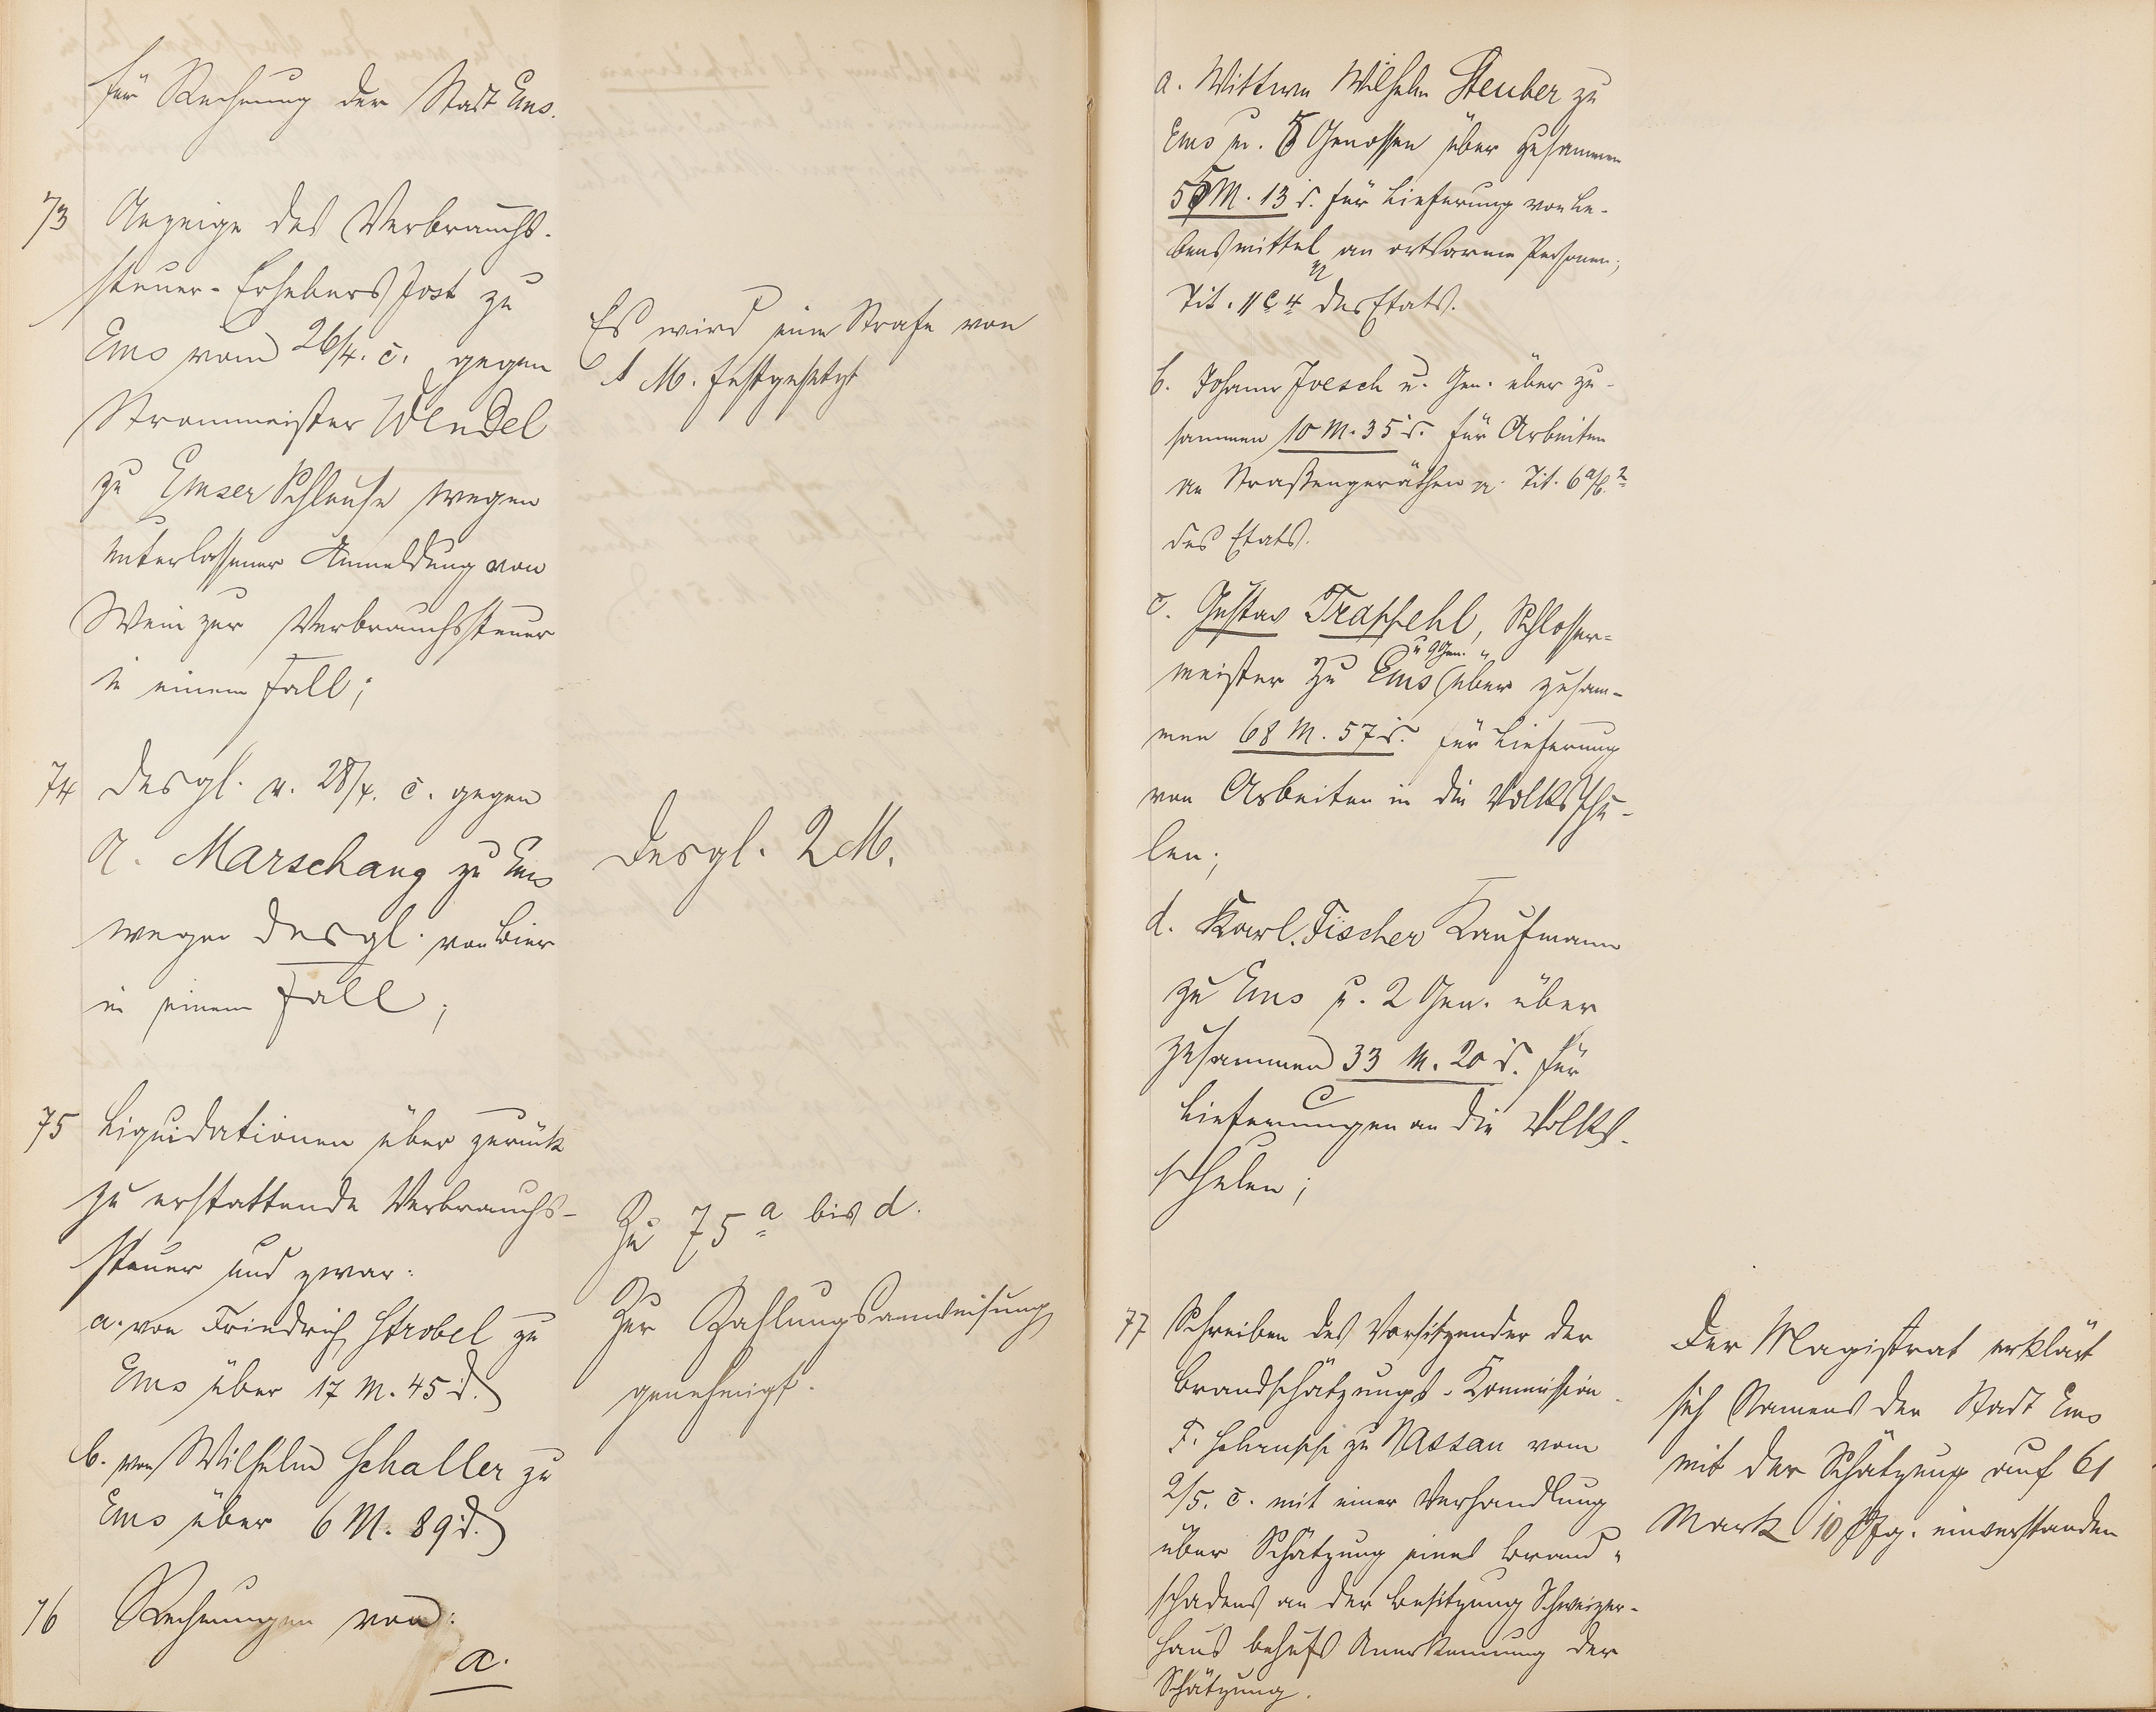 für Rechnung der Stadt Ems.
73 Anzeige des Verbrauchs-
steuer-Erhebers Jost zu
Ems vom 26/4. c. gegen
Strommeister Wendel
zu Emser Schleuse wegen
unterlassener Anmeldung von
Wein zur Verbrauchssteuer
in einem Fall;
Es wird eine Strafe von
1 M. festgesetzt
74 desgl. v. 28/4. c. gegen
A. Marschang zu Ems
wegen desgl. von Bier
in einem Fall;
desgl. 2 M.
75 Liquidationen über zurück
zu erstattende Verbrauchs-
steuer und zwar:
a. von Friedrich Strobel zu
Ems über 17 M. 45 d.
b. von Wilhelm Schaller zu
Ems über 6 M. 89 d.
Zu 75 a bis d.
Zur Zahlungsanweisung
genehmigt.
76 Rechnungen von:
a.
a. Wittwe Wilhelm Steuber zu
Ems u. Genossen über zusammen
M. 13 d. für Lieferung von Le-
bensmittel an ortsarme Personen;
Tit. 11 C 4 des Etats.
b. Johann Jvesch u. Gen. über zu-
sammen 10 M. 35 d. für Arbeiten
an Straßengeräthen Tit. 6 a/b. 2
des Etats.
c. Gustav Trapphehl, Schlosser-
meister zu Ems u 9 Gen. über zusam-
men 68 M. 57 d. für Lieferung
von Arbeiten in die Volksschu-
len;
d. Karl Fischer Kaufmann
zu Ems u. 2 Gen. über
zusammen 33 M. 20 d. für
Lieferungen an die Volks-
schulen;
77 Schreiben des Vorsitzender der
Brandschätzungs-Kommission
F. Schrupp zu Nassau vom
2/5. c. mit einer Verhandlung
über Schätzung eines Brand-
schadens an der Besitzung Schweizer-
haus behufs Anerkennung der
Schätzung.
Der Magistrat erklärt
sich Namens der Stadt Ems
mit der Schätzung auf 61
Mark 10 Pfg. einverstanden